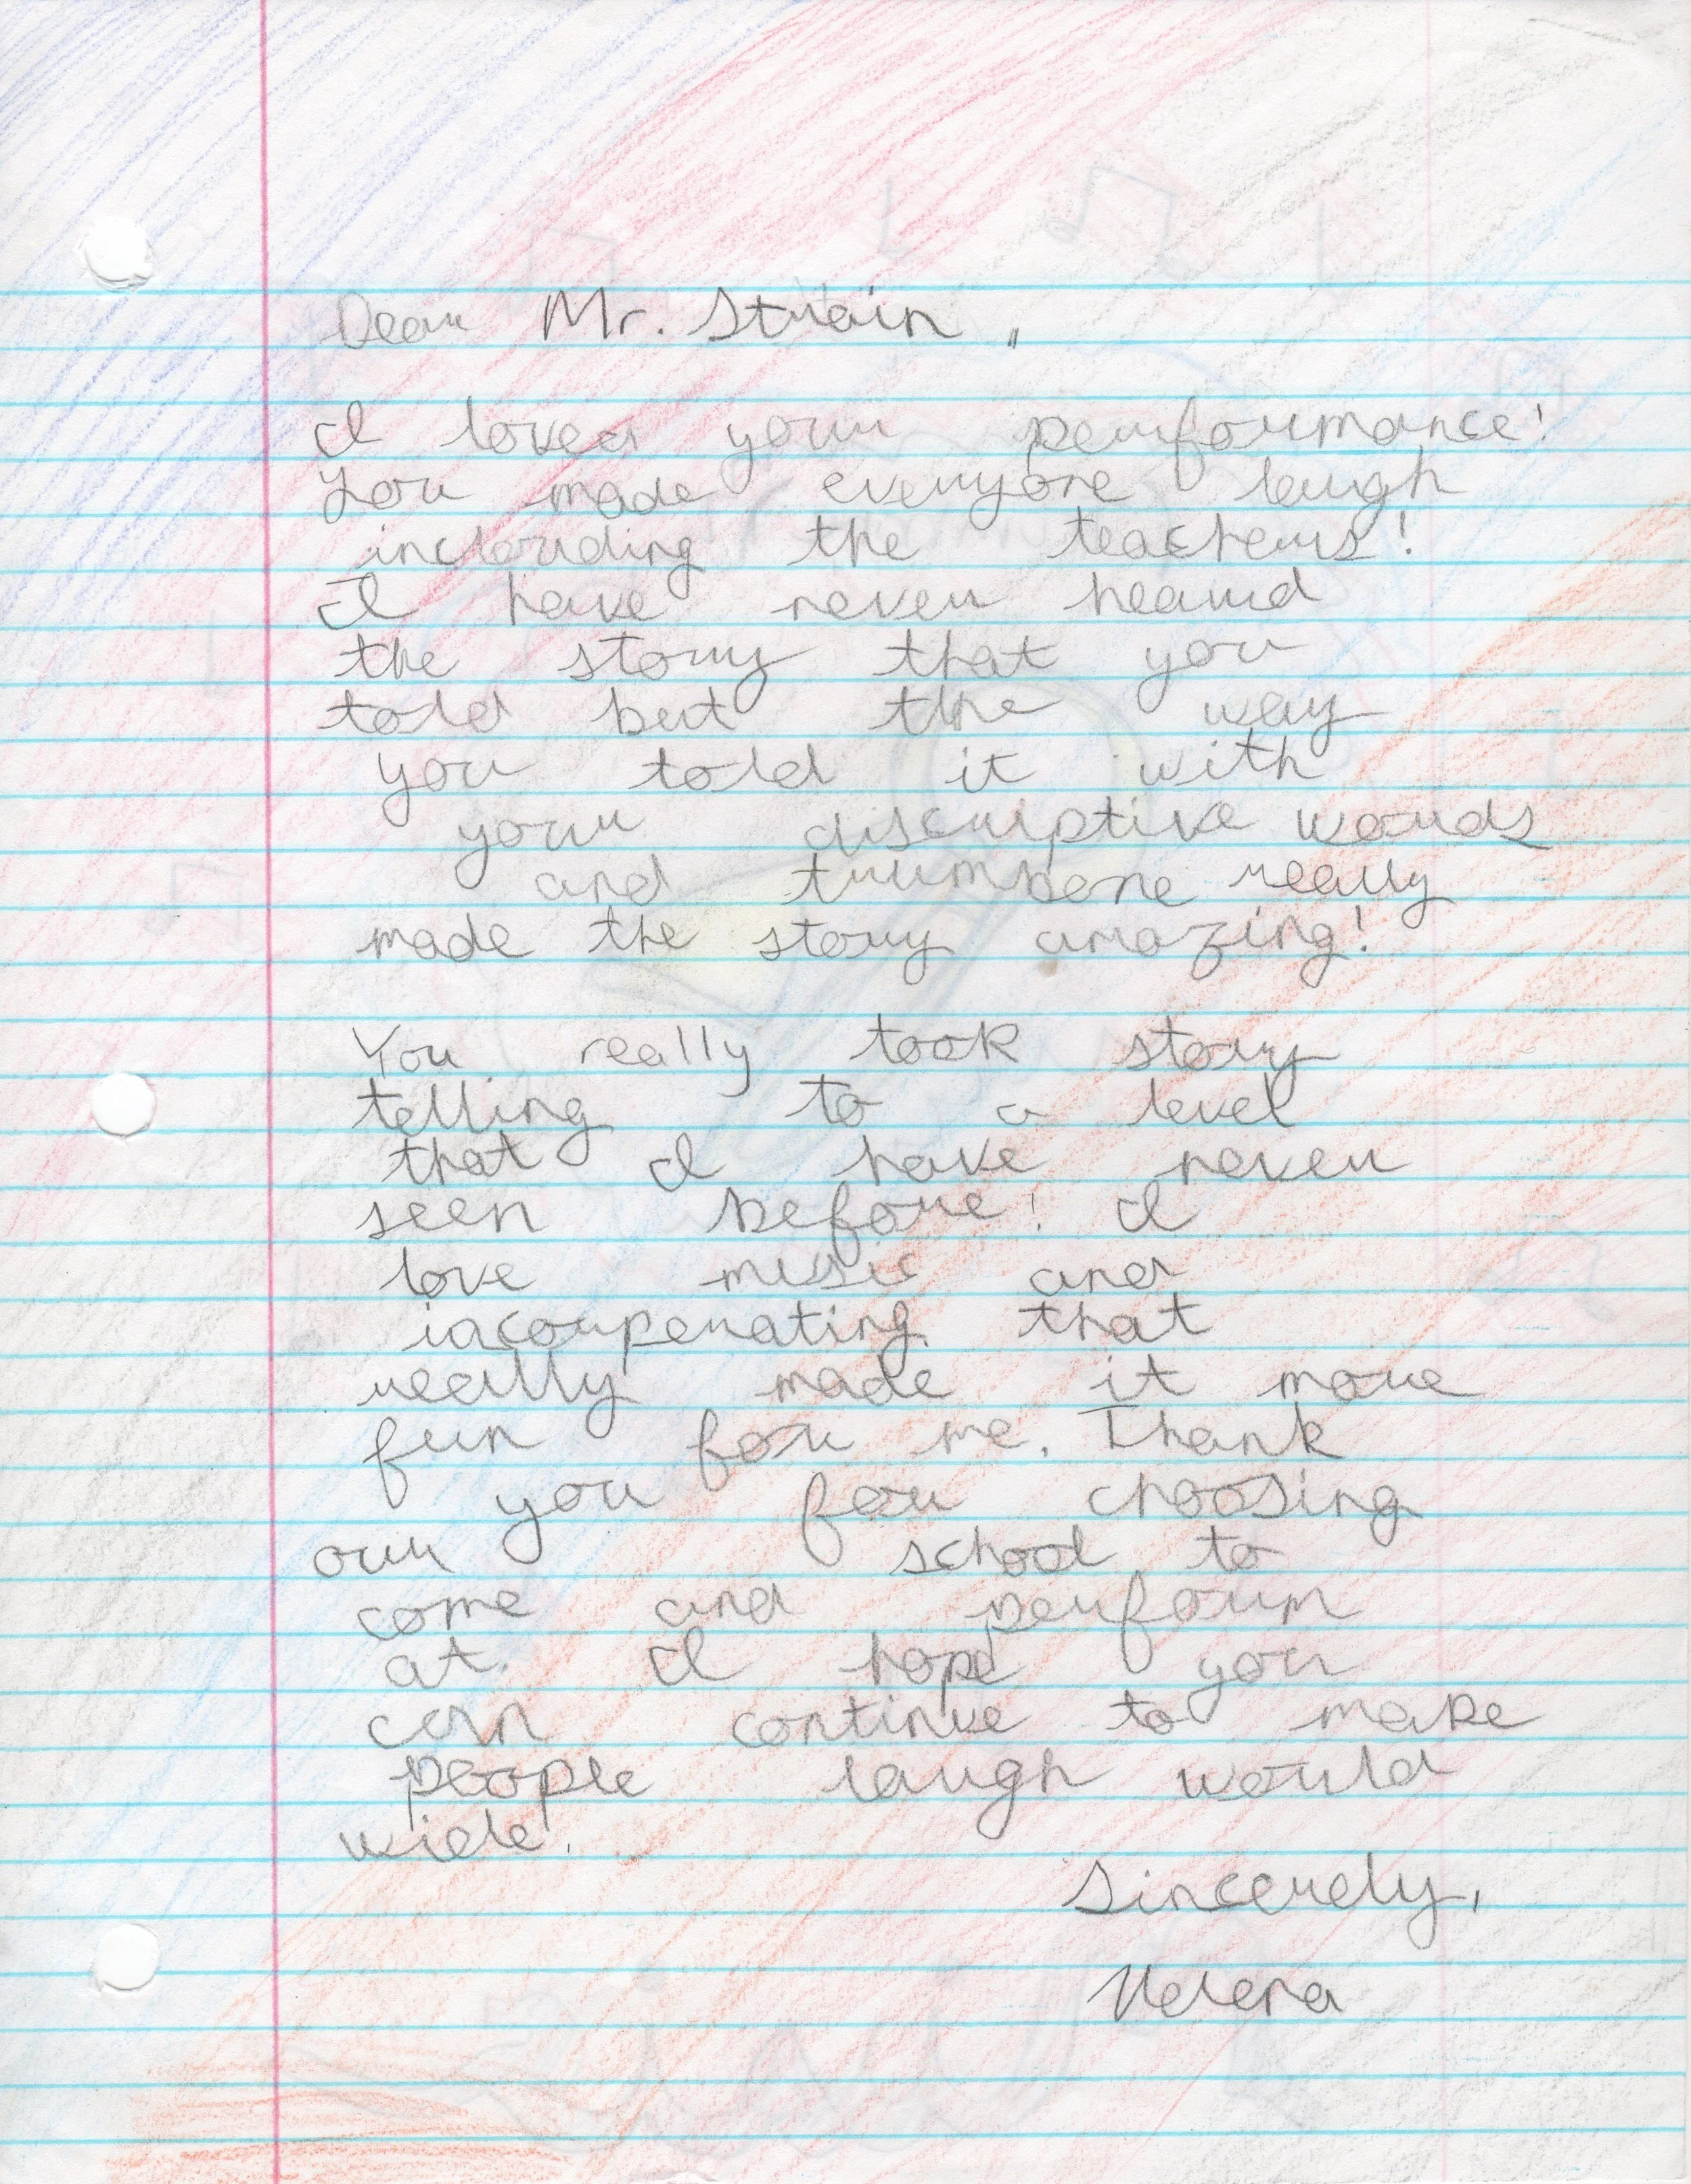 Dear Mr. Strain,
I loved your performance!
You made everyone laugh
including the teachers!
I have never heard
the story that you
told but the way
you told it with
your discriptive words
and trumbone really
made the story amazing!
You really took story
telling to a level
that I have never
seen before! I
love music and
iacorperating that
really made it more
fun for me. Thank
you for choosing
our school to
come and perform
at. I hope you
can continue to make
people laugh world
wide!
Sincerely,
Helena